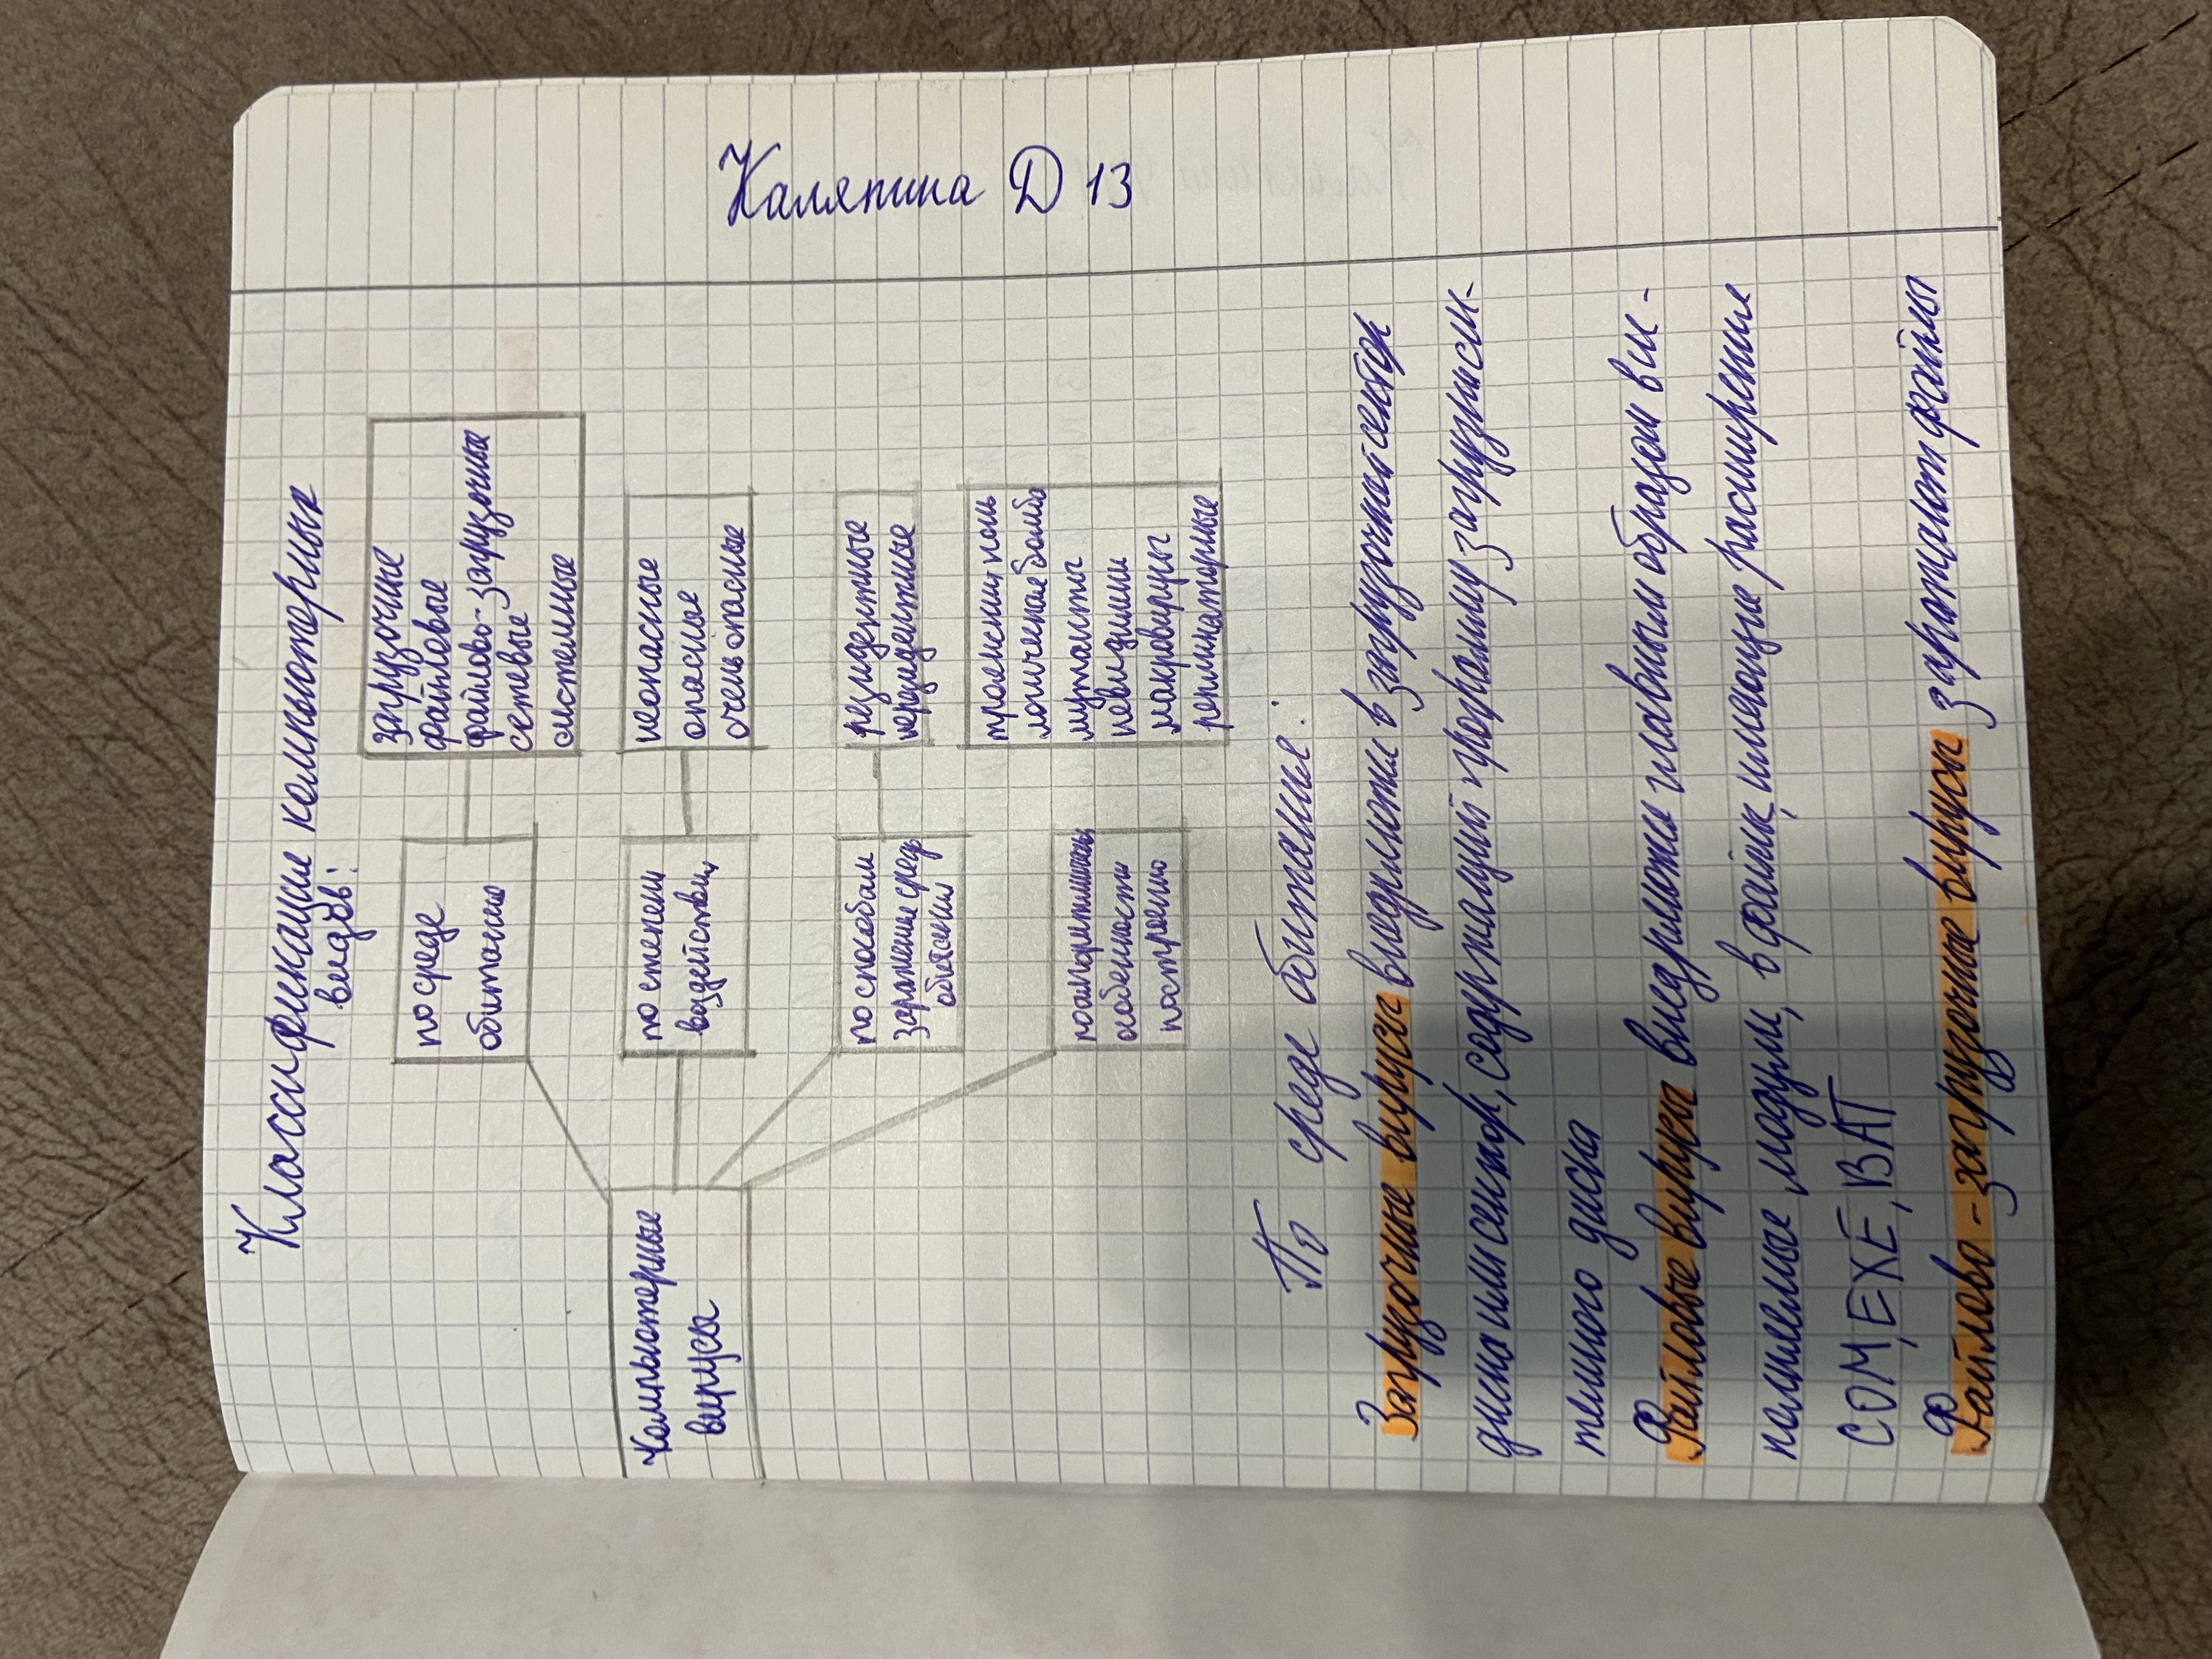 Каляпина Д 13
Классификации компьютерных
видов:
Компьютерные
вирусы
по среде
обитанию
загрузочные
файловые
файлово-загрузочные
сетевые
системные
по степени
воздействия
неопасные
опасные
очень опасные
по способам
заражение сред
обитания
резидентные
нерезидентные
особенности
построено
троянский конь
логическая бомба
мутанты
невидимки
макровирусы
репликаторные
По среде обитание:
Загрузочные вирусы внедряются в загрузочной сектор
диска или сектор, содержащий программу загрузки си-
темного диска
Файловые вирусы внедряются главным образом в ис-
полняемые модули, в файлы, имеющие расширение
COM, EXE, BAT
Файлово-загрузочные вирусы заражают файлы